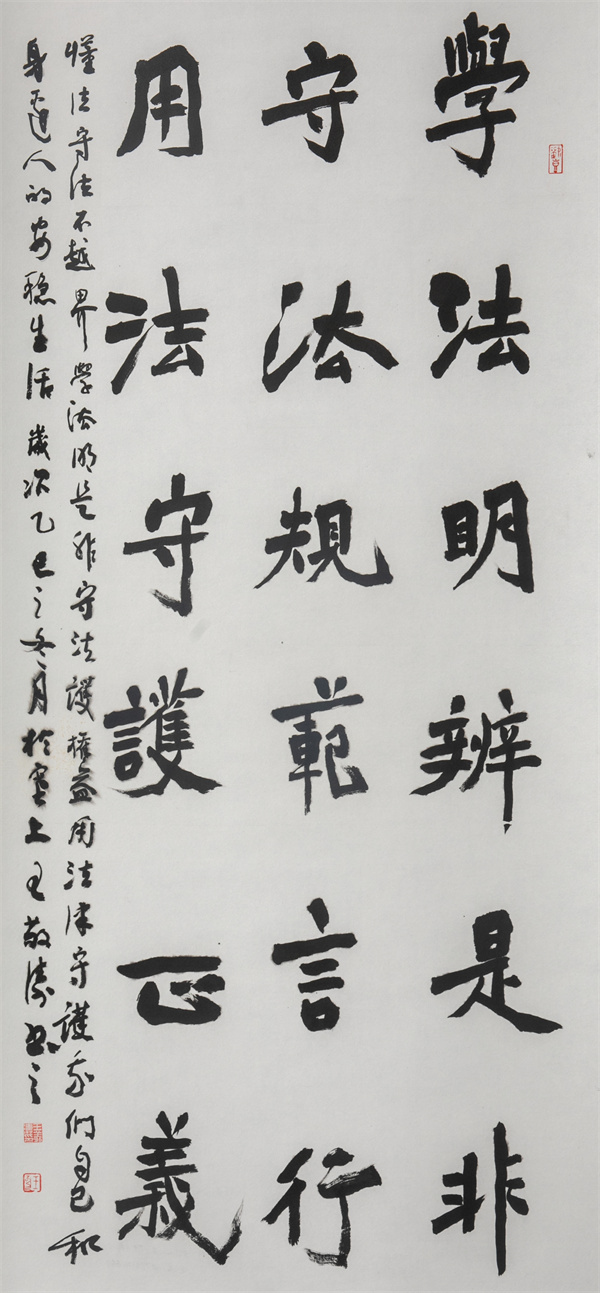 學法明辨是非
守法規範言行
用法守護正義
懂法守法不越界學法明是非守法護權益用法律守護我們自己和
身邊人的安穩生活歲次乙巳之冬月於上王敬濤書之